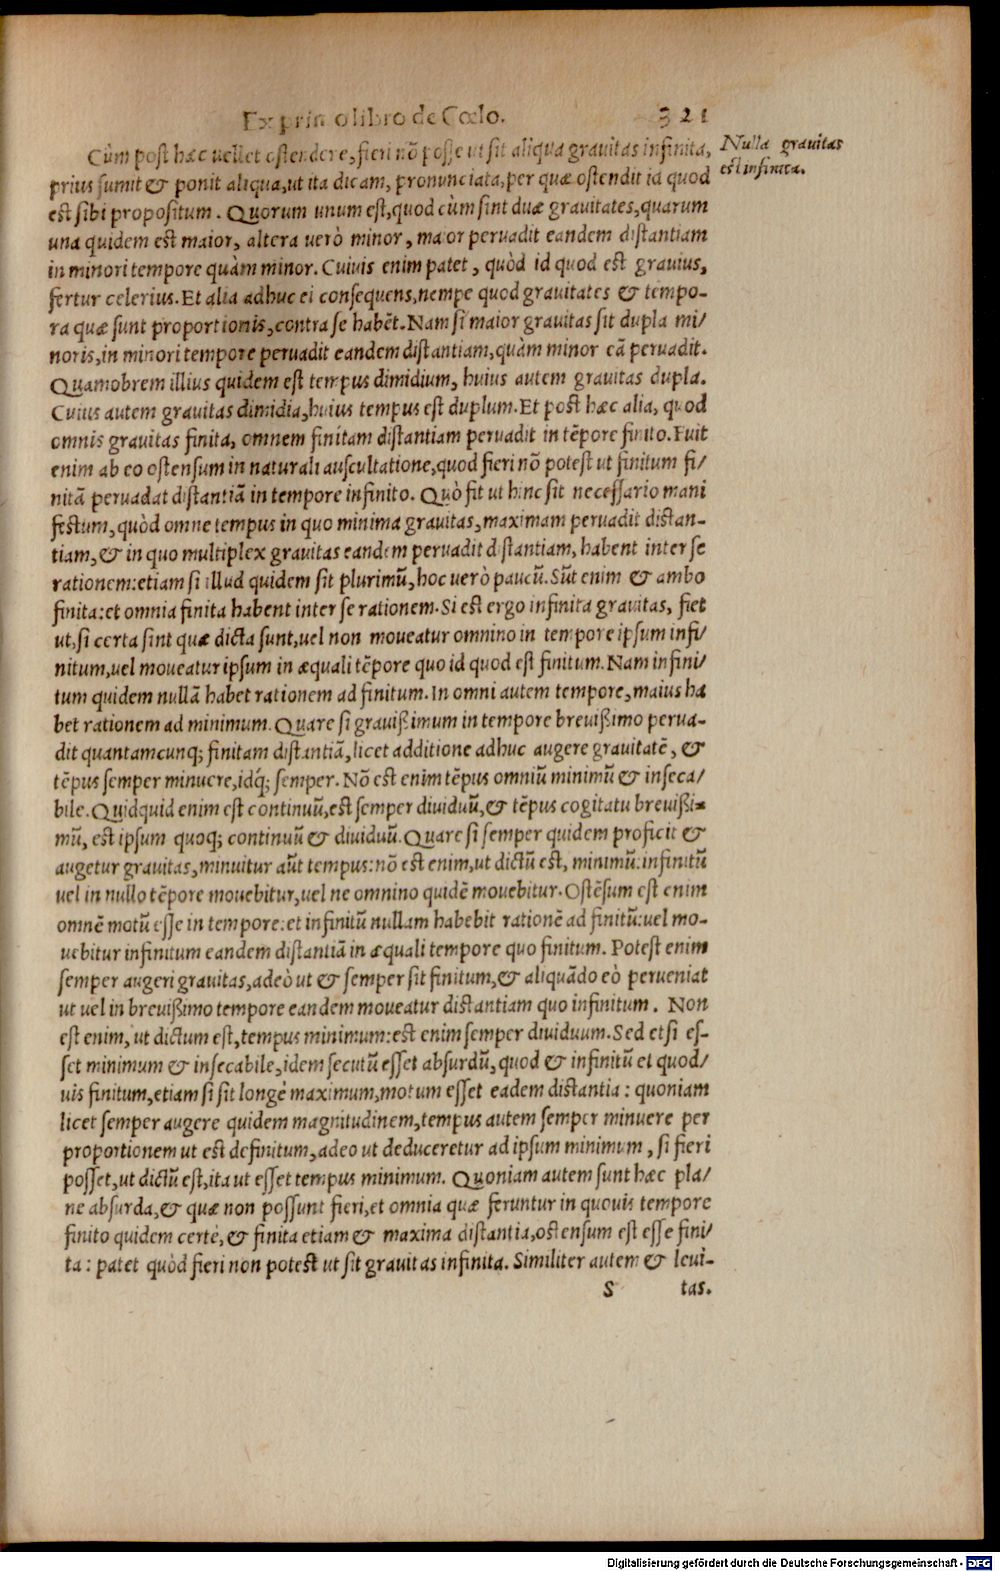 Ex primo libro de Cœlo. 321
Cùm post hæc vellet ostendere, fieri nõ posse ut sit aliqua gravitas infinita,
Nulla gravitas
est infinita.
prius sumit & ponit aliqua, ut ita dicam, pronunciata, per quæ ostendit id quod
est sibi propositum. Quorum unum est, quod cùm sint duæ gravitates, quarum
una quidem est maior, altera verò minor, maior pervadit eandem distantiam
in minori tempore quàm minor. Cuivis enim patet, quòd id quod est gravius,
fertur celerius. Et alia adhuc ei consequens, nempe quod gravitates & tempo-
ra quæ sunt proportionis, contra se habẽt. Nam si maior gravitas sit dupla mi/
noris, in minori tempore pervadit eandem distantiam, quàm minor eã pervadit.
Quamobrem illius quidem est tempus dimidium, huius autem gravitas dupla.
Cuius autem gravitas dimidia, huius tempus est duplum. Et post hæc alia, quod
omnis gravitas finita, omnem finitam distantiam pervadit in tẽpore finito. Fuit
enim ab eo ostensum in naturali auscultatione, quod fieri nõ potest ut finitum fi/
nitã pervadat distantiã in tempore infinito. Quò fit ut hinc sit necessario mani
festum, quòd omne tempus in quo minima gravitas, maximam pervadit distan-
tiam, & in quo multiplex gravitas eandem pervadit distantiam, habent inter se
rationem: etiam si illud quidem sit plurimũ, hoc verò paucũ. Sũt enim & ambo
finita: et omnia finita habent inter se rationem. Si est ergo infinita gravitas, fiet
ut, si certa sint quæ dicta sunt, vel non moveatur omnino in tempore ipsum infi/
nitum, vel moveatur ipsum in æquali tẽpore quo id quod est finitum. Nam infini/
tum quidem nullã habet rationem ad finitum. In omni autem tempore, maius ha
bet rationem ad minimum. Quare si gravißimum in tempore brevißimo perva-
dit quantamcunq; finitam distantiã, licet additione adhuc augere gravitatẽ, &
tẽpus semper minuere, idq́; semper. Nõ est enim tẽpus omniũ minimũ & inseca/
bile. Quidquid enim est continuũ, est semper dividuũ, & tẽpus cogitatu brevißi-
mũ, est ipsum quoq; continuũ & dividuũ. Quare si semper quidem proficit &
augetur gravitas, minuitur aũt tempus: nõ est enim, ut dictũ est, minimũ: infinitũ
vel in nullo tẽpore movebitur, vel ne omnino quidẽ movebitur. Ostẽsum est enim
omnẽ motũ esse in tempore: et infinitũ nullam habebit rationẽ ad finitũ: vel mo-
vebitur infinitum eandem distantiã in æquali tempore quo finitum. Potest enim
semper augeri gravitas, adeò ut & semper sit finitum, & aliquãdo eò perveniat
ut vel in brevißimo tempore eandem moveatur distantiam quo infinitum. Non
est enim, ut dictum est, tempus minimum: est enim semper dividuum. Sed etsi es-
set minimum & insecabile, idem secutũ esset absurdũ, quod & infinitũ et quod/
vis finitum, etiam si sit longè maximum, motum esset eadem distantia: quoniam
licet semper augere quidem magnitudinem, tempus autem semper minuere per
proportionem ut est definitum, adeo ut deduceretur ad ipsum minimum, si fieri
posset, ut dictũ est, ita ut esset tempus minimum. Quoniam autem sunt hæc pla/
ne absurda, & quæ non possunt fieri, et omnia quæ feruntur in quovis tempore
finito quidem certè, & finita etiam & maxima distantia, ostensum est esse fini/
ta: patet quòd fieri non potest ut sit gravitas infinita. Similiter autem & levi-
S tas.
Digitalisierung gefördert durch die Deutsche Forschungsgemeinschaft - DFG